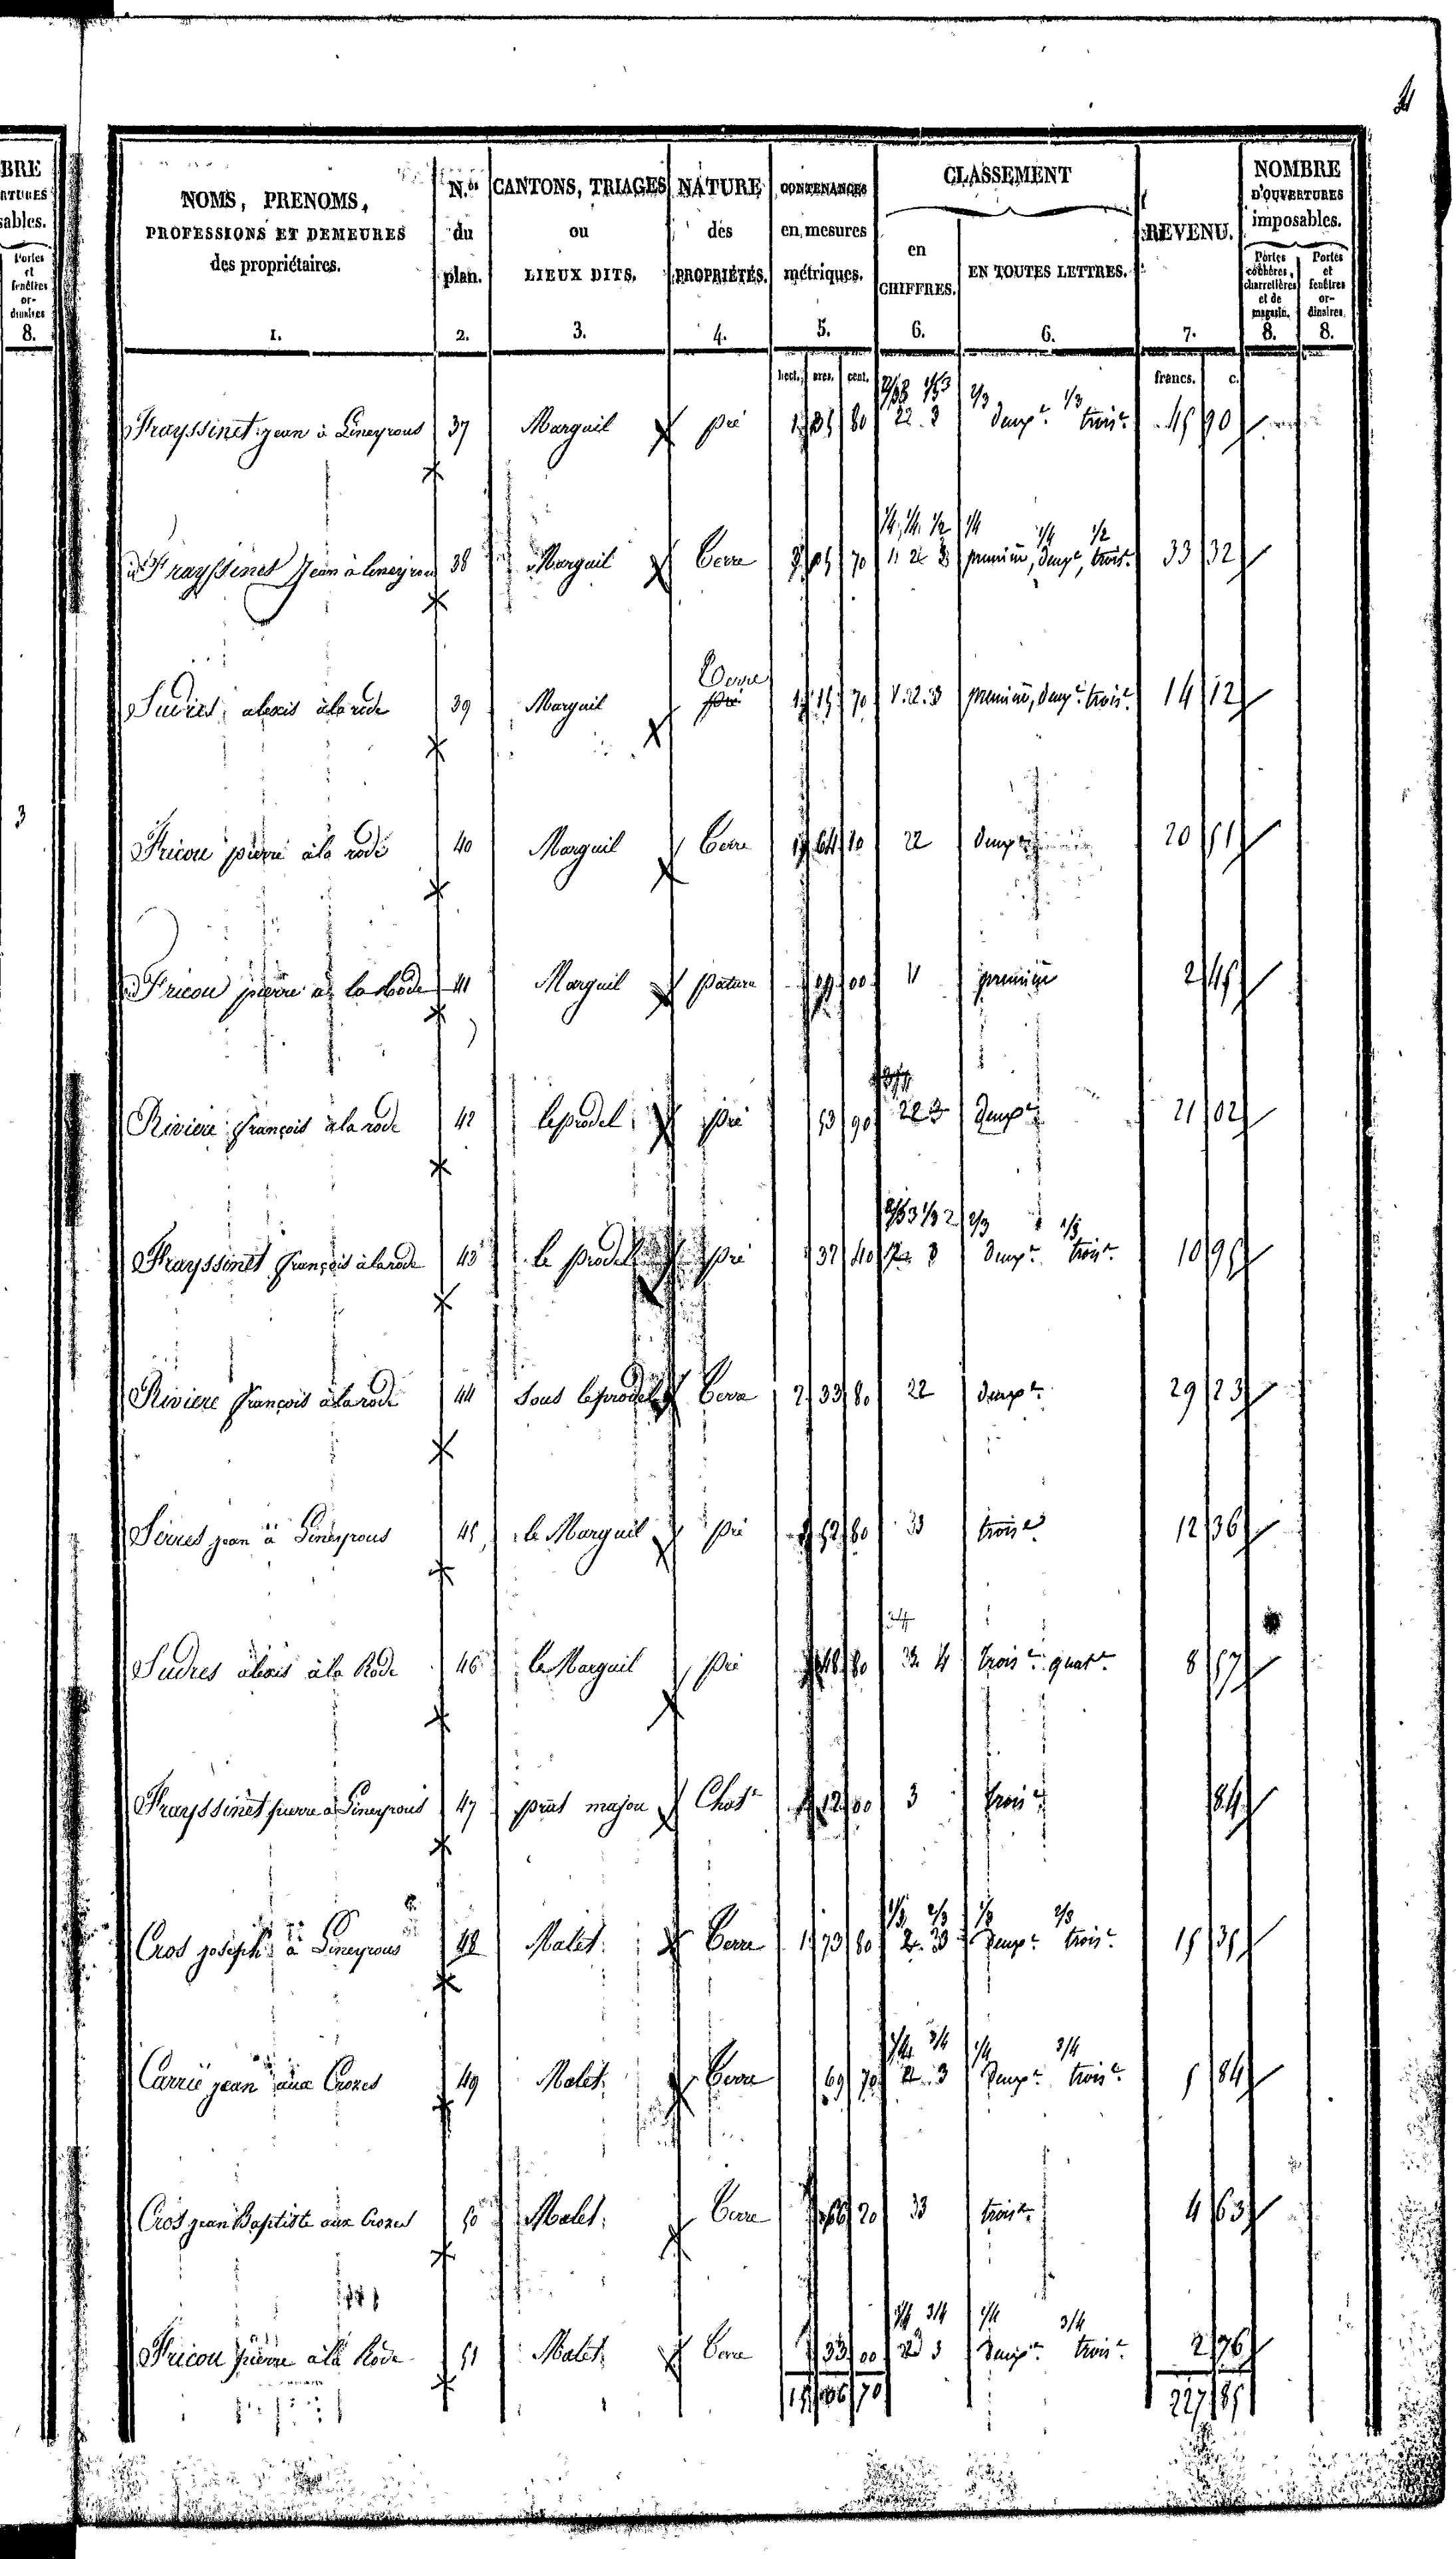 4
BRE
RTURES
sables.
Portes
et
fenêtres
or-
dinaires
8.
3
NOMS, PRENOMS,
PROFESSIONS ET DEMEURES
des propriétaires.
1.
N.os
du
plan.
2.
CANTONS, TRIAGES
ou
LIEUX DITS.
3.
NATURE
des
PROPRIÉTÉS.
4.
CONTENANCES
en mesures
métriques.
5.
CLASSEMENT
en
CHIFFRES.
6.
EN TOUTES LETTRES.
6.
REVENU.
7.
NOMBRE
D'OUVERTURES
imposables.
Portes
cochères,
charretières
et de
magasin.
8.
Portes
et
fenêtres
or-
dinaires.
8.
hect. ares. cent. francs. c.
2/3 1/3 2/3 1/3
Frayssinet jean à Gineyrous 37 Marguil pré 80 22. 3 deuxe. troise. 45 90
1/4 1/4 1/2 1/4 1/4 1/2
Frayssinet Jean à Gineyrous 38 Marguil terre 70 premiere, deuxe, troise. 33 32
Terre
Sudres alexis à la rode 39 Marguil pré 1 15 70 1. 2. 3 premiere, deuxe. troise. 14 12
Fricou pierre à la rode 40 Marguil terre 1 64 10 22 deuxe 20 51
Fricou pierre à la Rode 41 Marguil pature 00 11 premiere 2 45
Riviere françois à la rode 42 le pradel pré 53 90 22 3 deuxe 21 02
2/3 1/3 2/3 1/3
Frayssinet françois à la rode 43 le pradel pré 37 40 3 deuxe. troise. 10 95
Riviere françois à la rode 44 Sous le pradel terre 2 33 80 22 deuxe. 29 23
Serres jean à Gineyrous 45 le Marguil pré 52 80 33 troise. 12 36
3 4
Sudres alexis à la Rode 46 le Marguil pré 48 80 4 troise. quate. 8 57
Frayssinet pierre à Gineyrous 47 prat majou Chate 12 00 3 troise. 84
1/3 2/3 1/3 2/3
Cros joseph à Gineyrous 48 Malet terre 1 73 80 2. 33 deuxe. troise. 15 35
1/4 3/4 1/4 3/4
Carrié jean aux Crozes 49 Malet terre 69 70 3 deuxe. troise. 5 84
Cros jean Baptiste aux Crozes 50 Malet terre 66 20 33 troise. 4 63
1/4 3/4 1/4 3/4
Fricou pierre à la Rode 51 Malet terre 33 00 3 deuxe. troise. 2 76
15 06 70 227 85